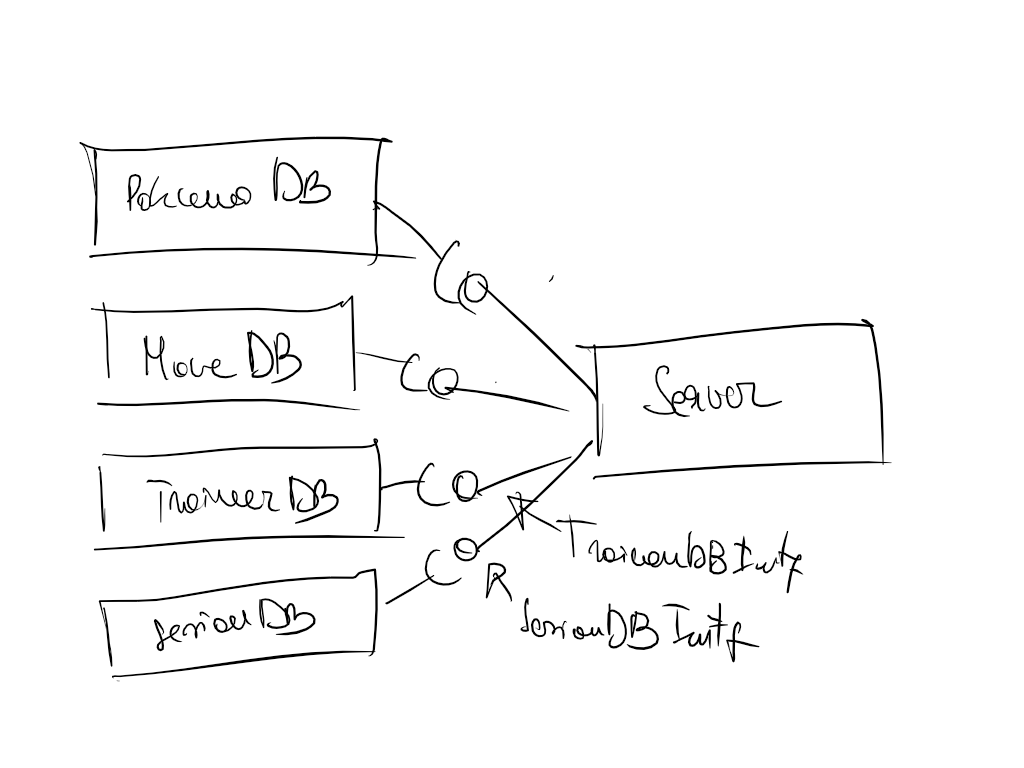 Pokemon DB
Move DB
Trainer DB
Session DB
Server
TrainerDB Intf
SessionDB Intf